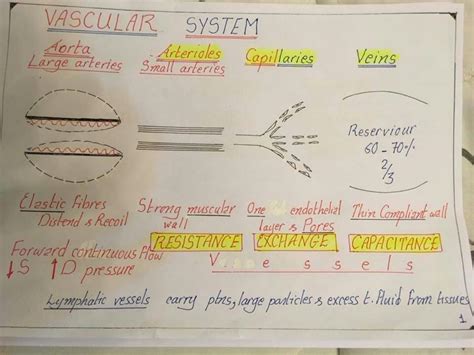 VASCULAR SYSTEM
Aorta
Large arteries
Arterioles
Small arteries
Capillaries
Veins
Reserviour
60-70%
2/3
Elastic Fibres
Distend & Recoil
Strong muscular
wall
One endothelial
layer & Pores
Thin Compliant wall
Forward continuous flow
↓S ↑D pressure
RESISTANCE
EXCHANGE
CAPACITANCE
V e s s e l s
Lymphatic vessels carry ptns, large particles & excess t. Fluid from tissues
1